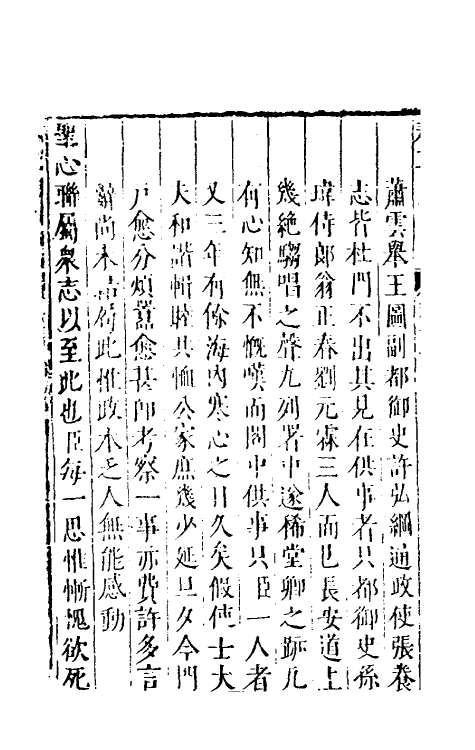 蕭雲舉王圖副都御史許弘綱通政使張養
志皆杜門不出其見在供事者只都御史孫
瑋侍郎翁正春劉元霖三人而已長安道上
幾絶騶唱之聲九列署中遂稀堂卿之跡凡
有心知無不慨嘆而閣中供事只臣一人者
又三年有餘海內寒心之日久矣假使士大
夫和諧輯睦共恤公家庶幾少延旦夕今門
戶愈分煩囂愈甚即考察一事亦費許多言
語尚未結局此惟政本乏人無能感動
聖心聯屬衆志以至此也臣每一思惟慚愧欲死